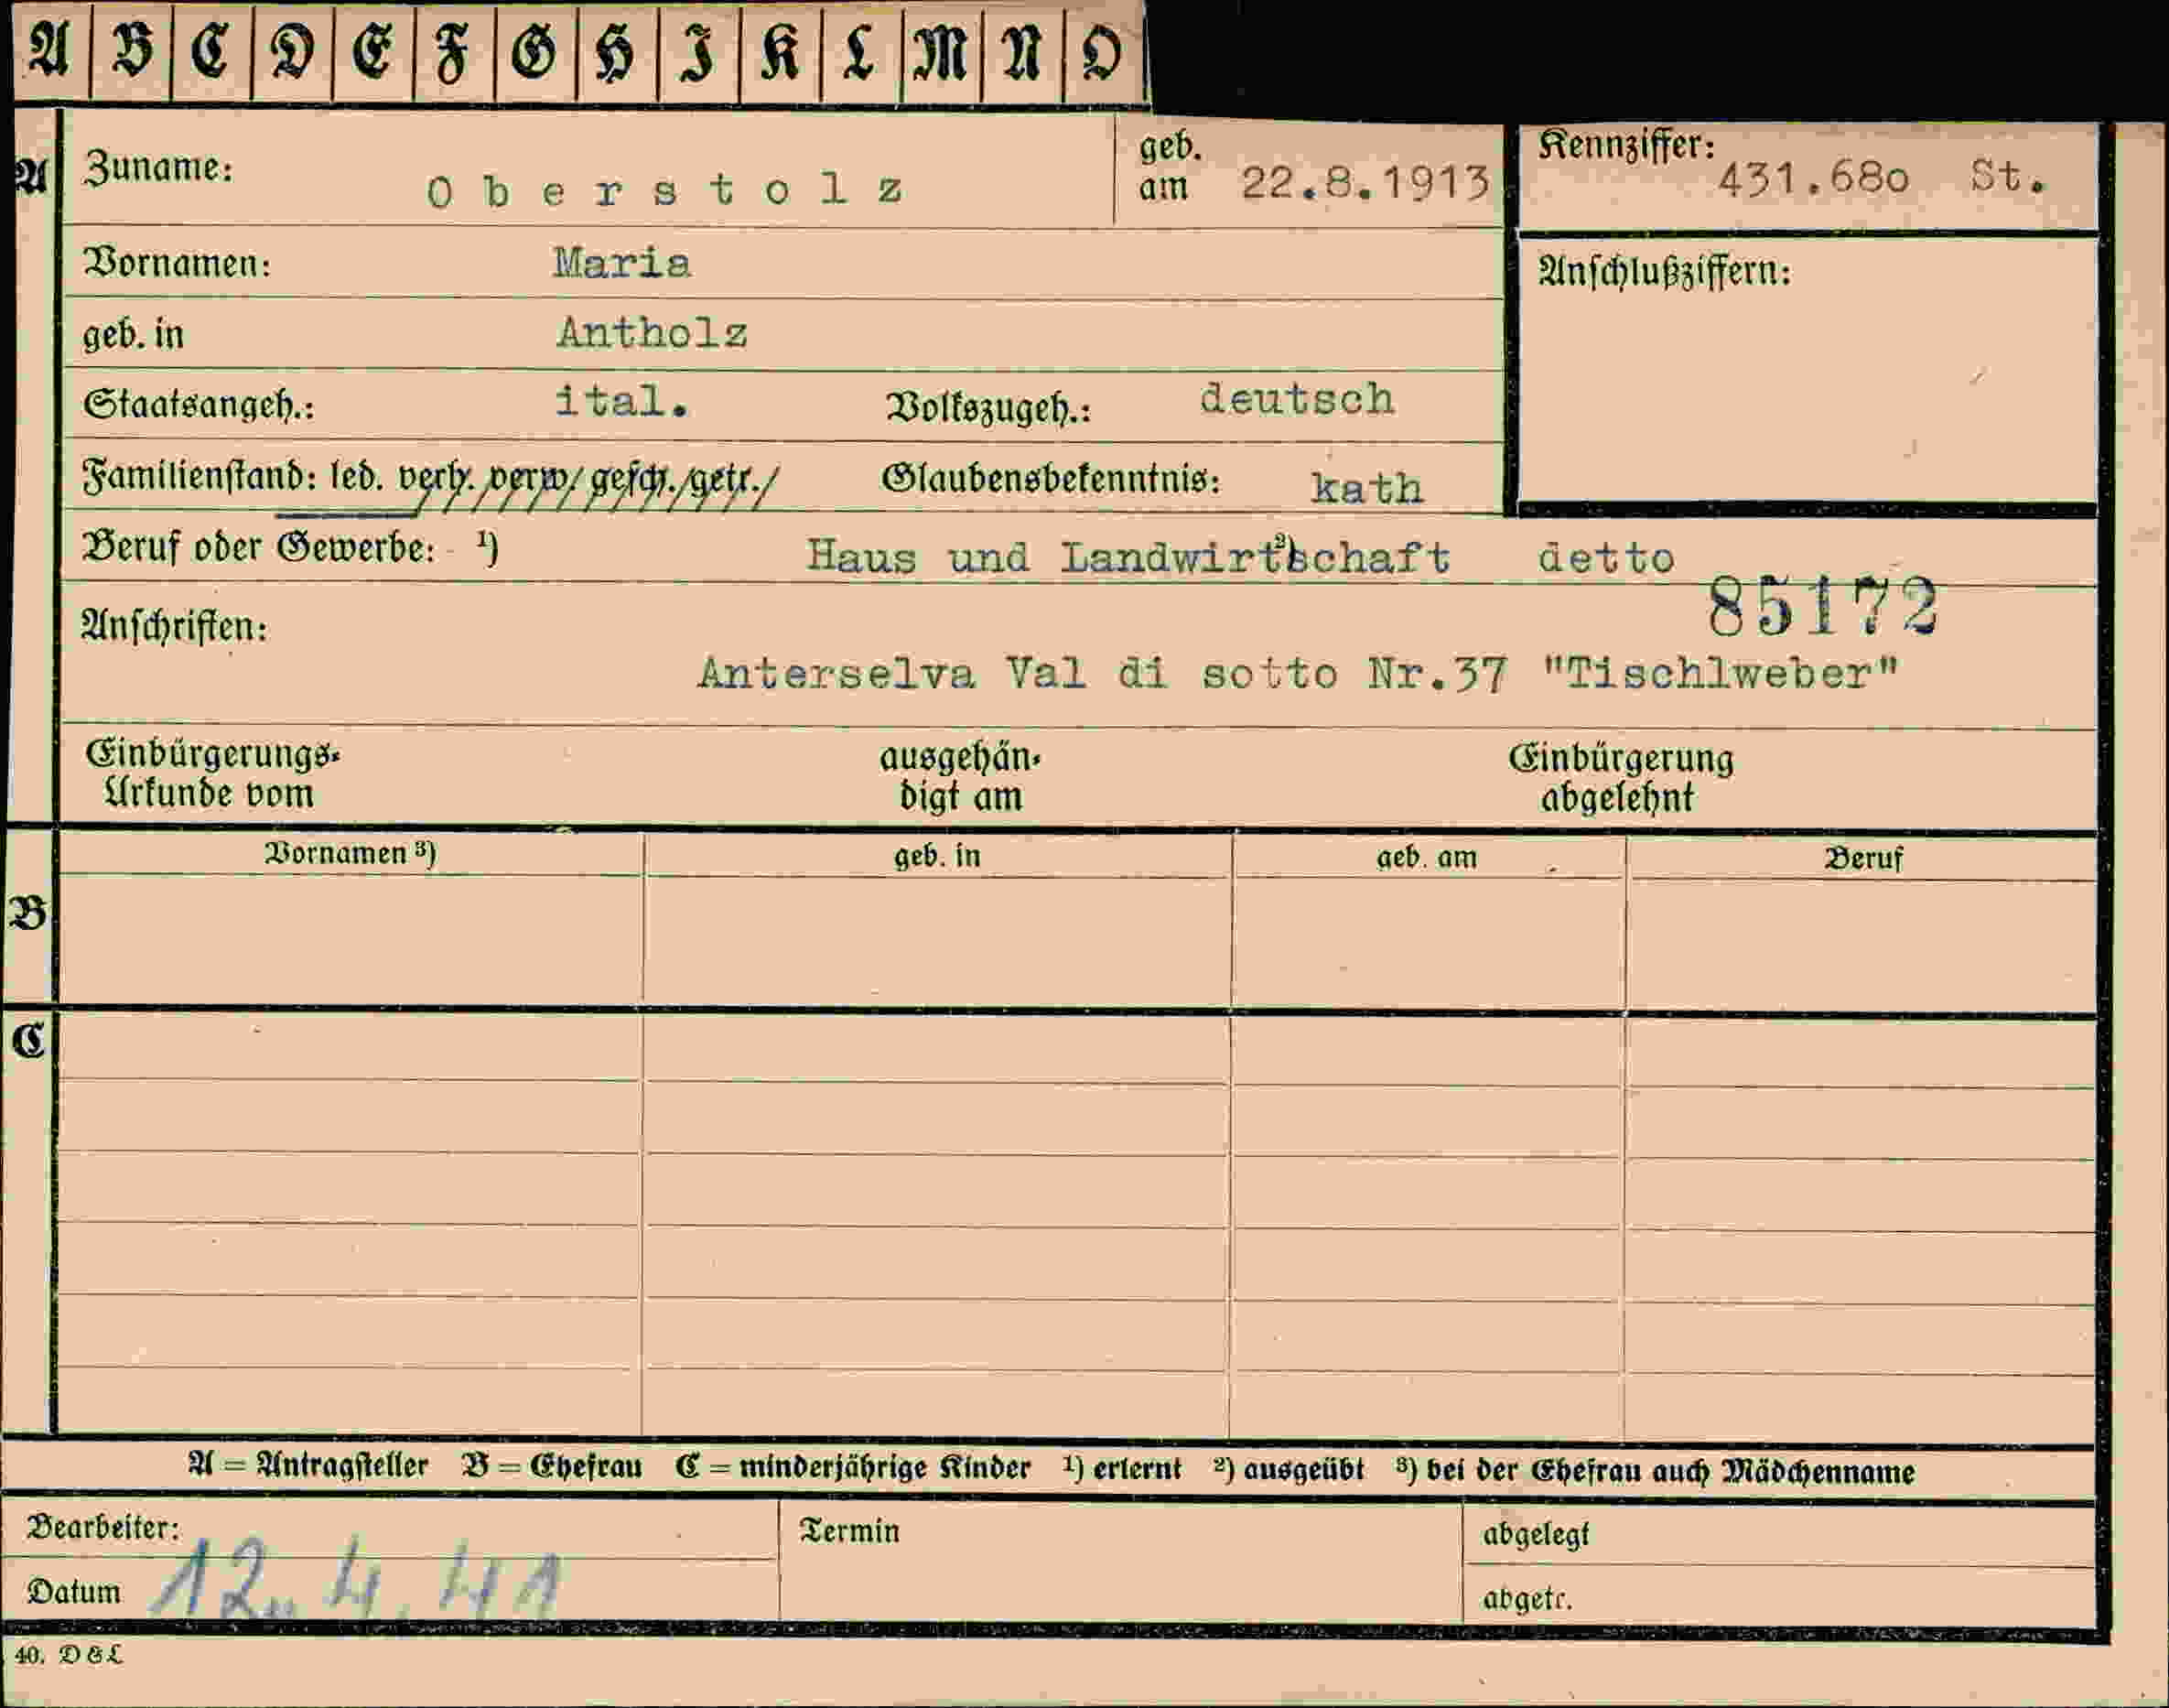 A B C D E F G H I K L M N O
A Zuname: Oberstolz geb. am 22.8.1913 Kennziffer: 431.680 St.
Vornamen: Maria Anschlußziffern:
geb. in Antholz
Staatsangeh.: ital. Volkszugeh.: deutsch
Familienstand: led. verh. verw. gesch. getr. Glaubensbekenntnis: kath
Beruf oder Gewerbe: ¹) Haus und Landwirtschaft ²) detto
85172
Anschriften:
Anterselva Val di sotto Nr.37 "Tischlweber"
Einbürgerungs- ausgehän- Einbürgerung
Urkunde vom digt am abgelehnt
Vornamen ³) geb. in geb. am Beruf
B
C
A = Antragsteller B = Ehefrau C = minderjährige Kinder ¹) erlernt ²) ausgeübt ³) bei der Ehefrau auch Mädchenname
Bearbeiter: Termin abgelegt
Datum 12.4.41 abgetr.
40. D & L